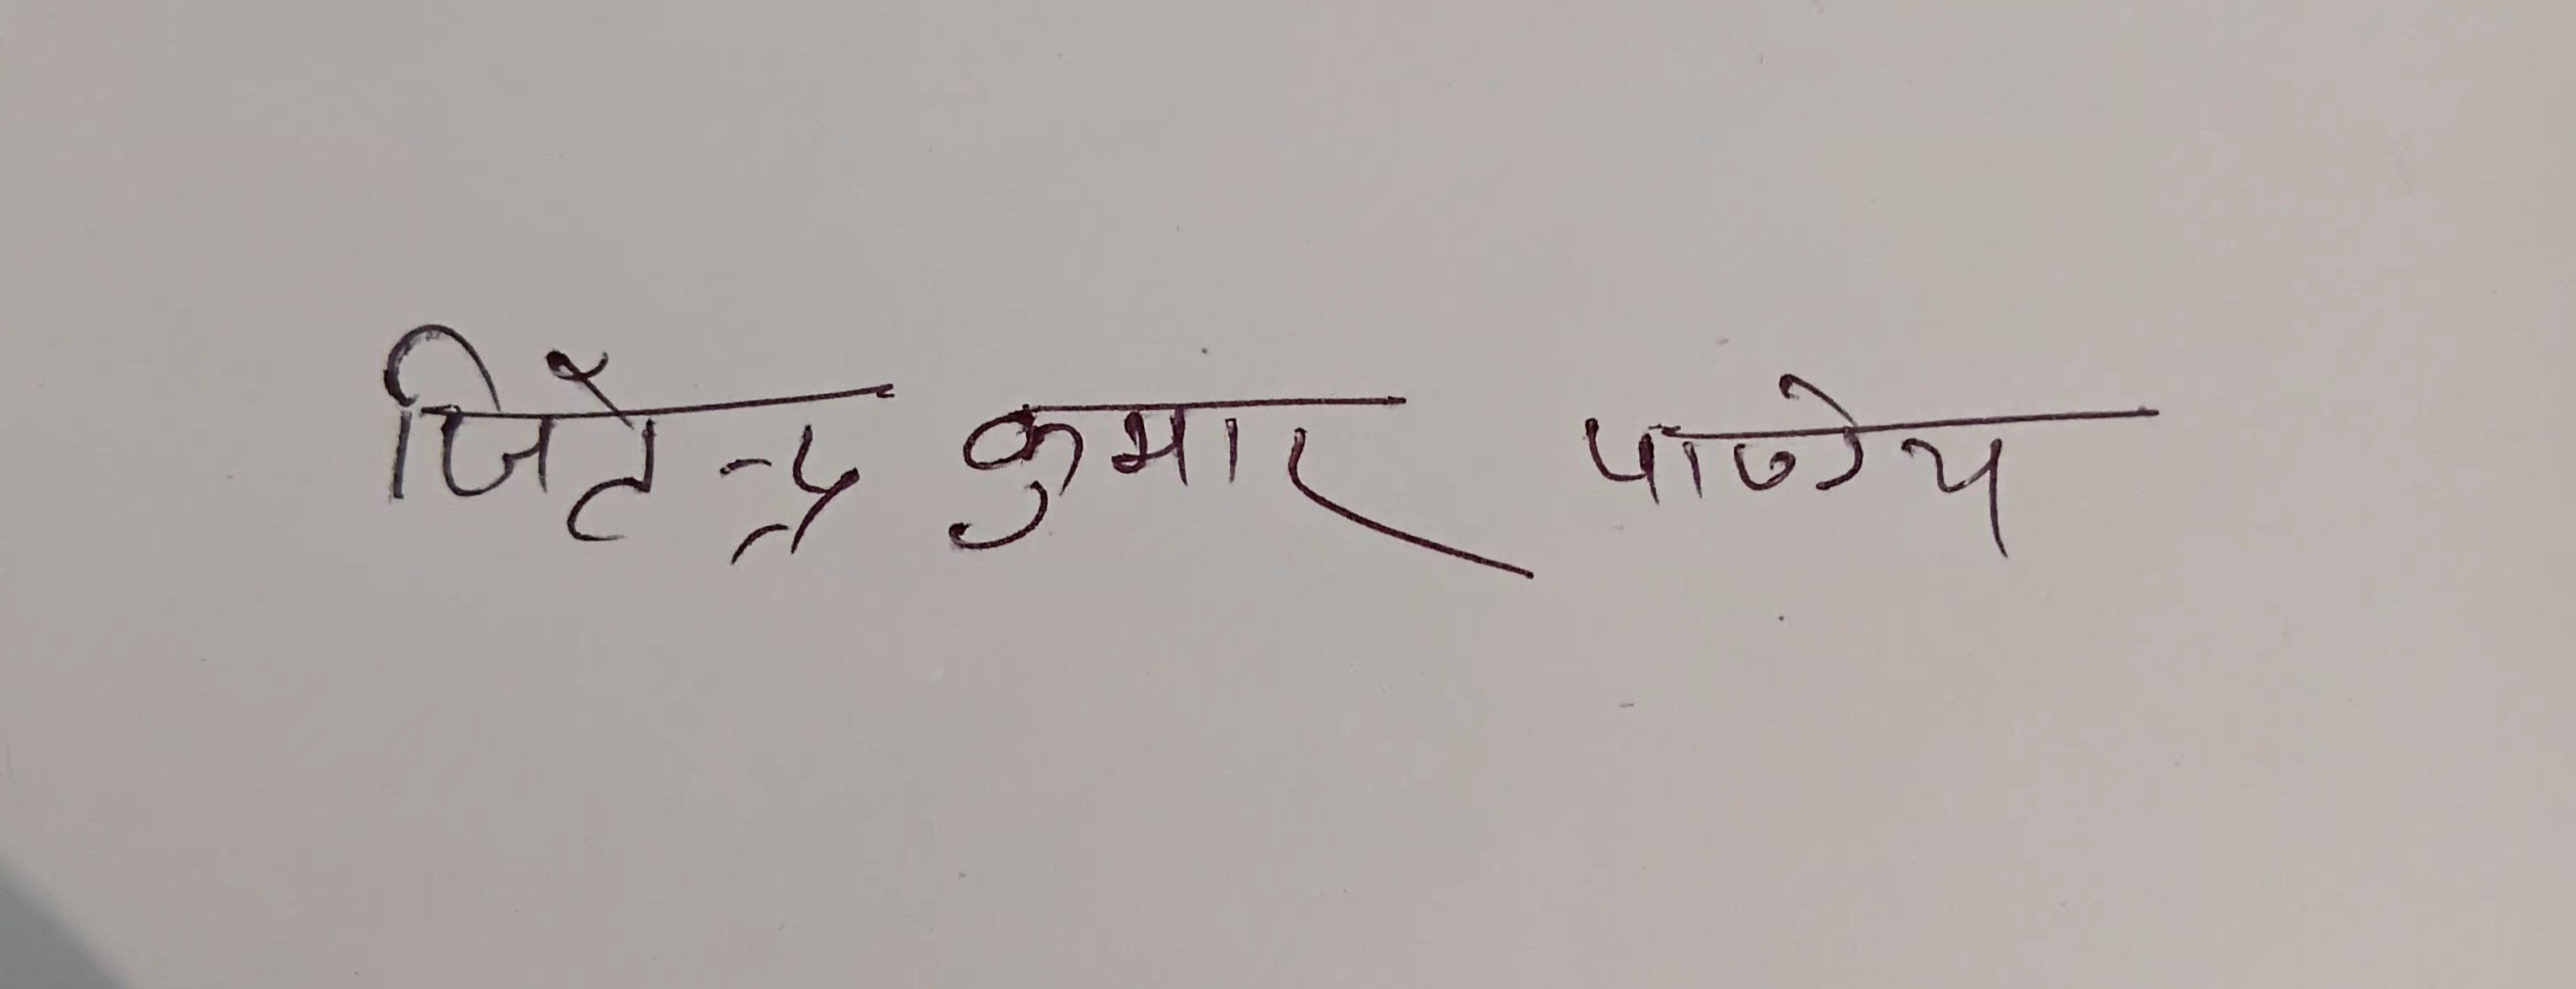 जितेन्द्र कुमार पाण्डेय